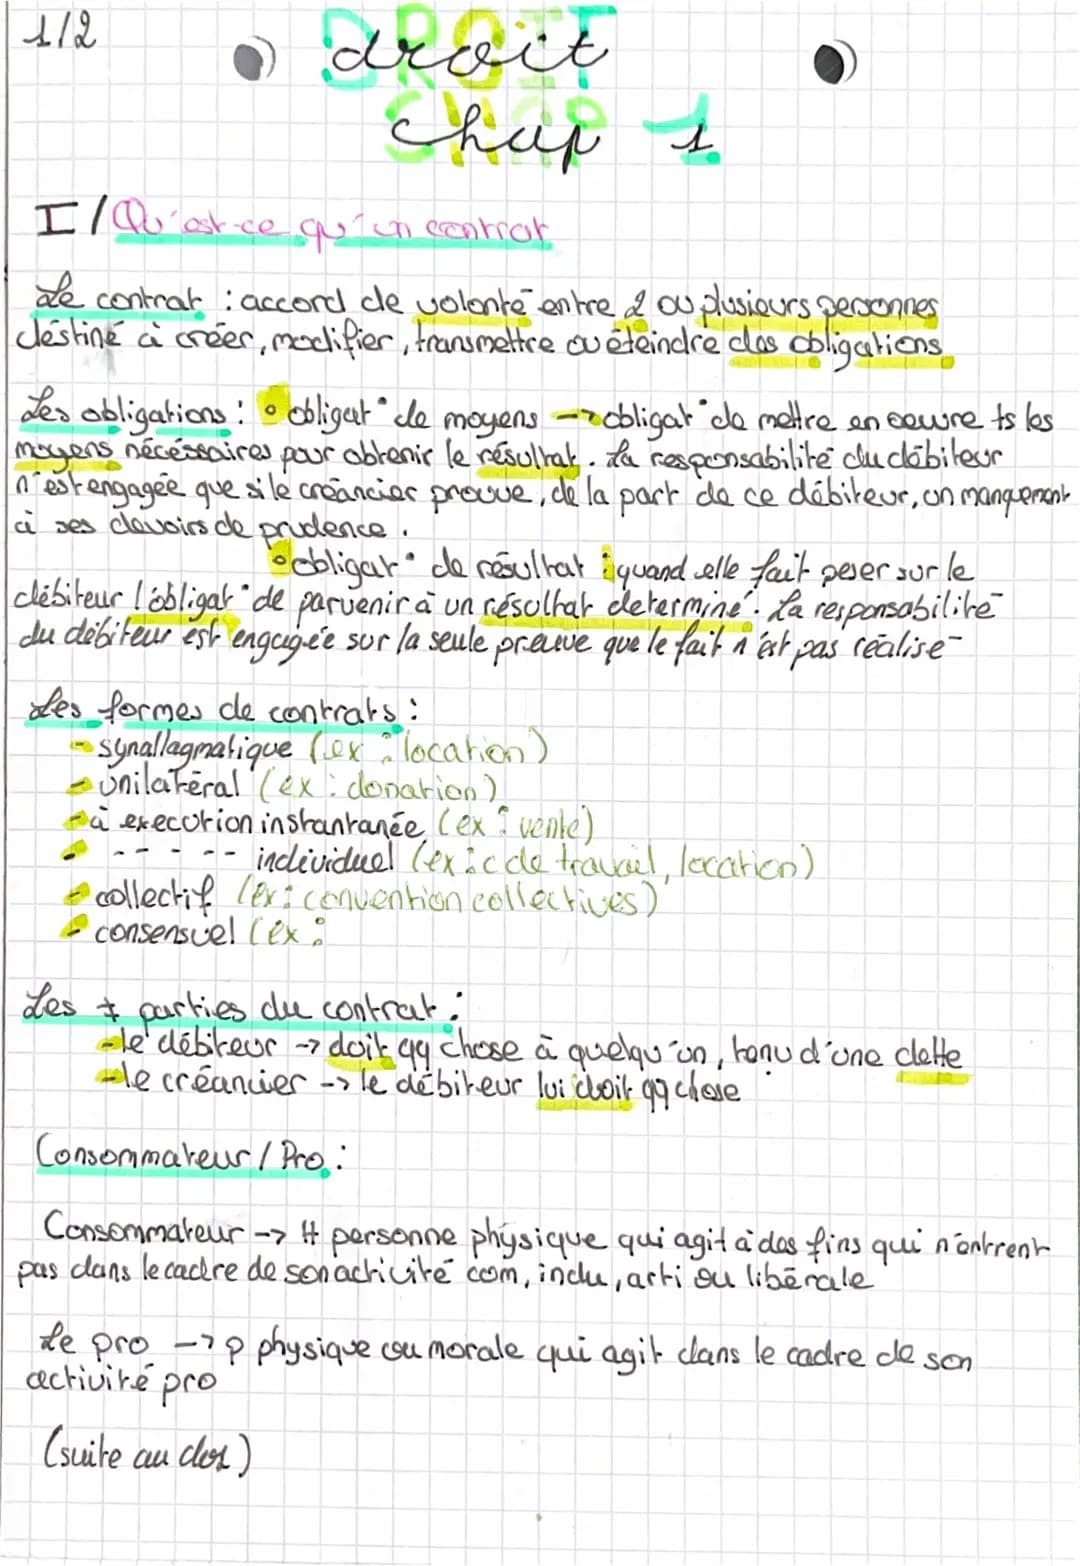 1/2
droit
chap 1
I/ Qu'est-ce qu'un contrat
Le contrat : accord de volonté entre 2 ou plusieurs personnes
déstiné à créer, modifier, transmettre ou éteindre des obligations
Les obligations : • obligat° de moyens → obligat° de mettre en oeuvre ts les
moyens nécéssaires pour obtenir le résultat. La responsabilité du débiteur
n'est engagée que si le créancier prouve, de la part de ce débiteur, un manquement
à ses devoirs de prudence.
• obligat° de résultat : quand elle fait peser sur le
débiteur l'obligat° de parvenir à un résultat determiné. La responsabilité
du débiteur est engagée sur la seule preuve que le fait n'est pas réalisé
Les formes de contrats :
- synallagmatique (ex : location)
- unilatéral (ex : donation)
- à execution instantanée (ex : vente)
- -- - -- individuel (ex : c de travail, location)
- collectif (ex : convention collectives)
- consensuel (ex :
Les ≠ parties du contrat :
- le débiteur → doit qq chose à quelqu'un, tenu d'une dette
- le créancier → le débiteur lui doit qq chose
Consommateur / Pro :
Consommateur → tt personne physique qui agit à des fins qui n'entrent
pas dans le cadre de son activité com, indu, arti ou libérale
Le pro → p physique ou morale qui agit dans le cadre de son
activité pro
(suite au dos)